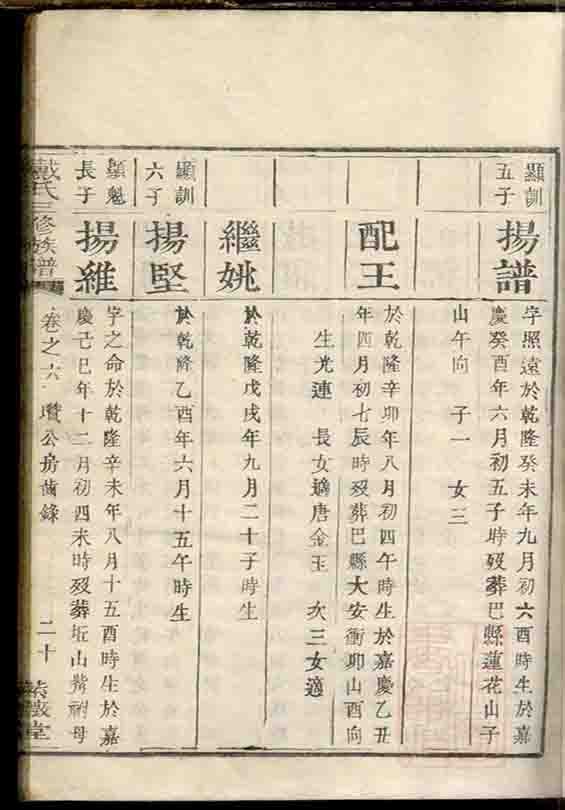 顯訓
五子
揚譜
字照遠於乾隆癸未年九月初六酉時生於嘉
慶癸酉年六月初五子時歿葬巴縣蓮花山子
山午向 子一 女三
配王
於乾隆辛卯年八月初四午時生於嘉慶乙丑
年四月初七辰時歿葬巴縣大安衝卯山酉向
生光連 長女適唐金玉 次三女適
繼姚
於乾隆戊戌年九月二十子時生
顯訓
六子
揚堅
於乾隆乙酉年六月十五午時生
顯魁
長子
揚維
字之命於乾隆辛未年八月十五酉時生於嘉
慶己巳年十二月初四未時歿葬坵山嘴祔母
戴氏三修族譜
卷之六 瓚公房齒錄
二十